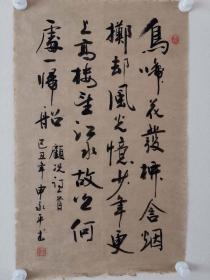 鳥啼花發柳含烟
擲却風光憶少年更
上高樓望江水故乡何
處一歸船 顧况詩首
己丑年 申永平书